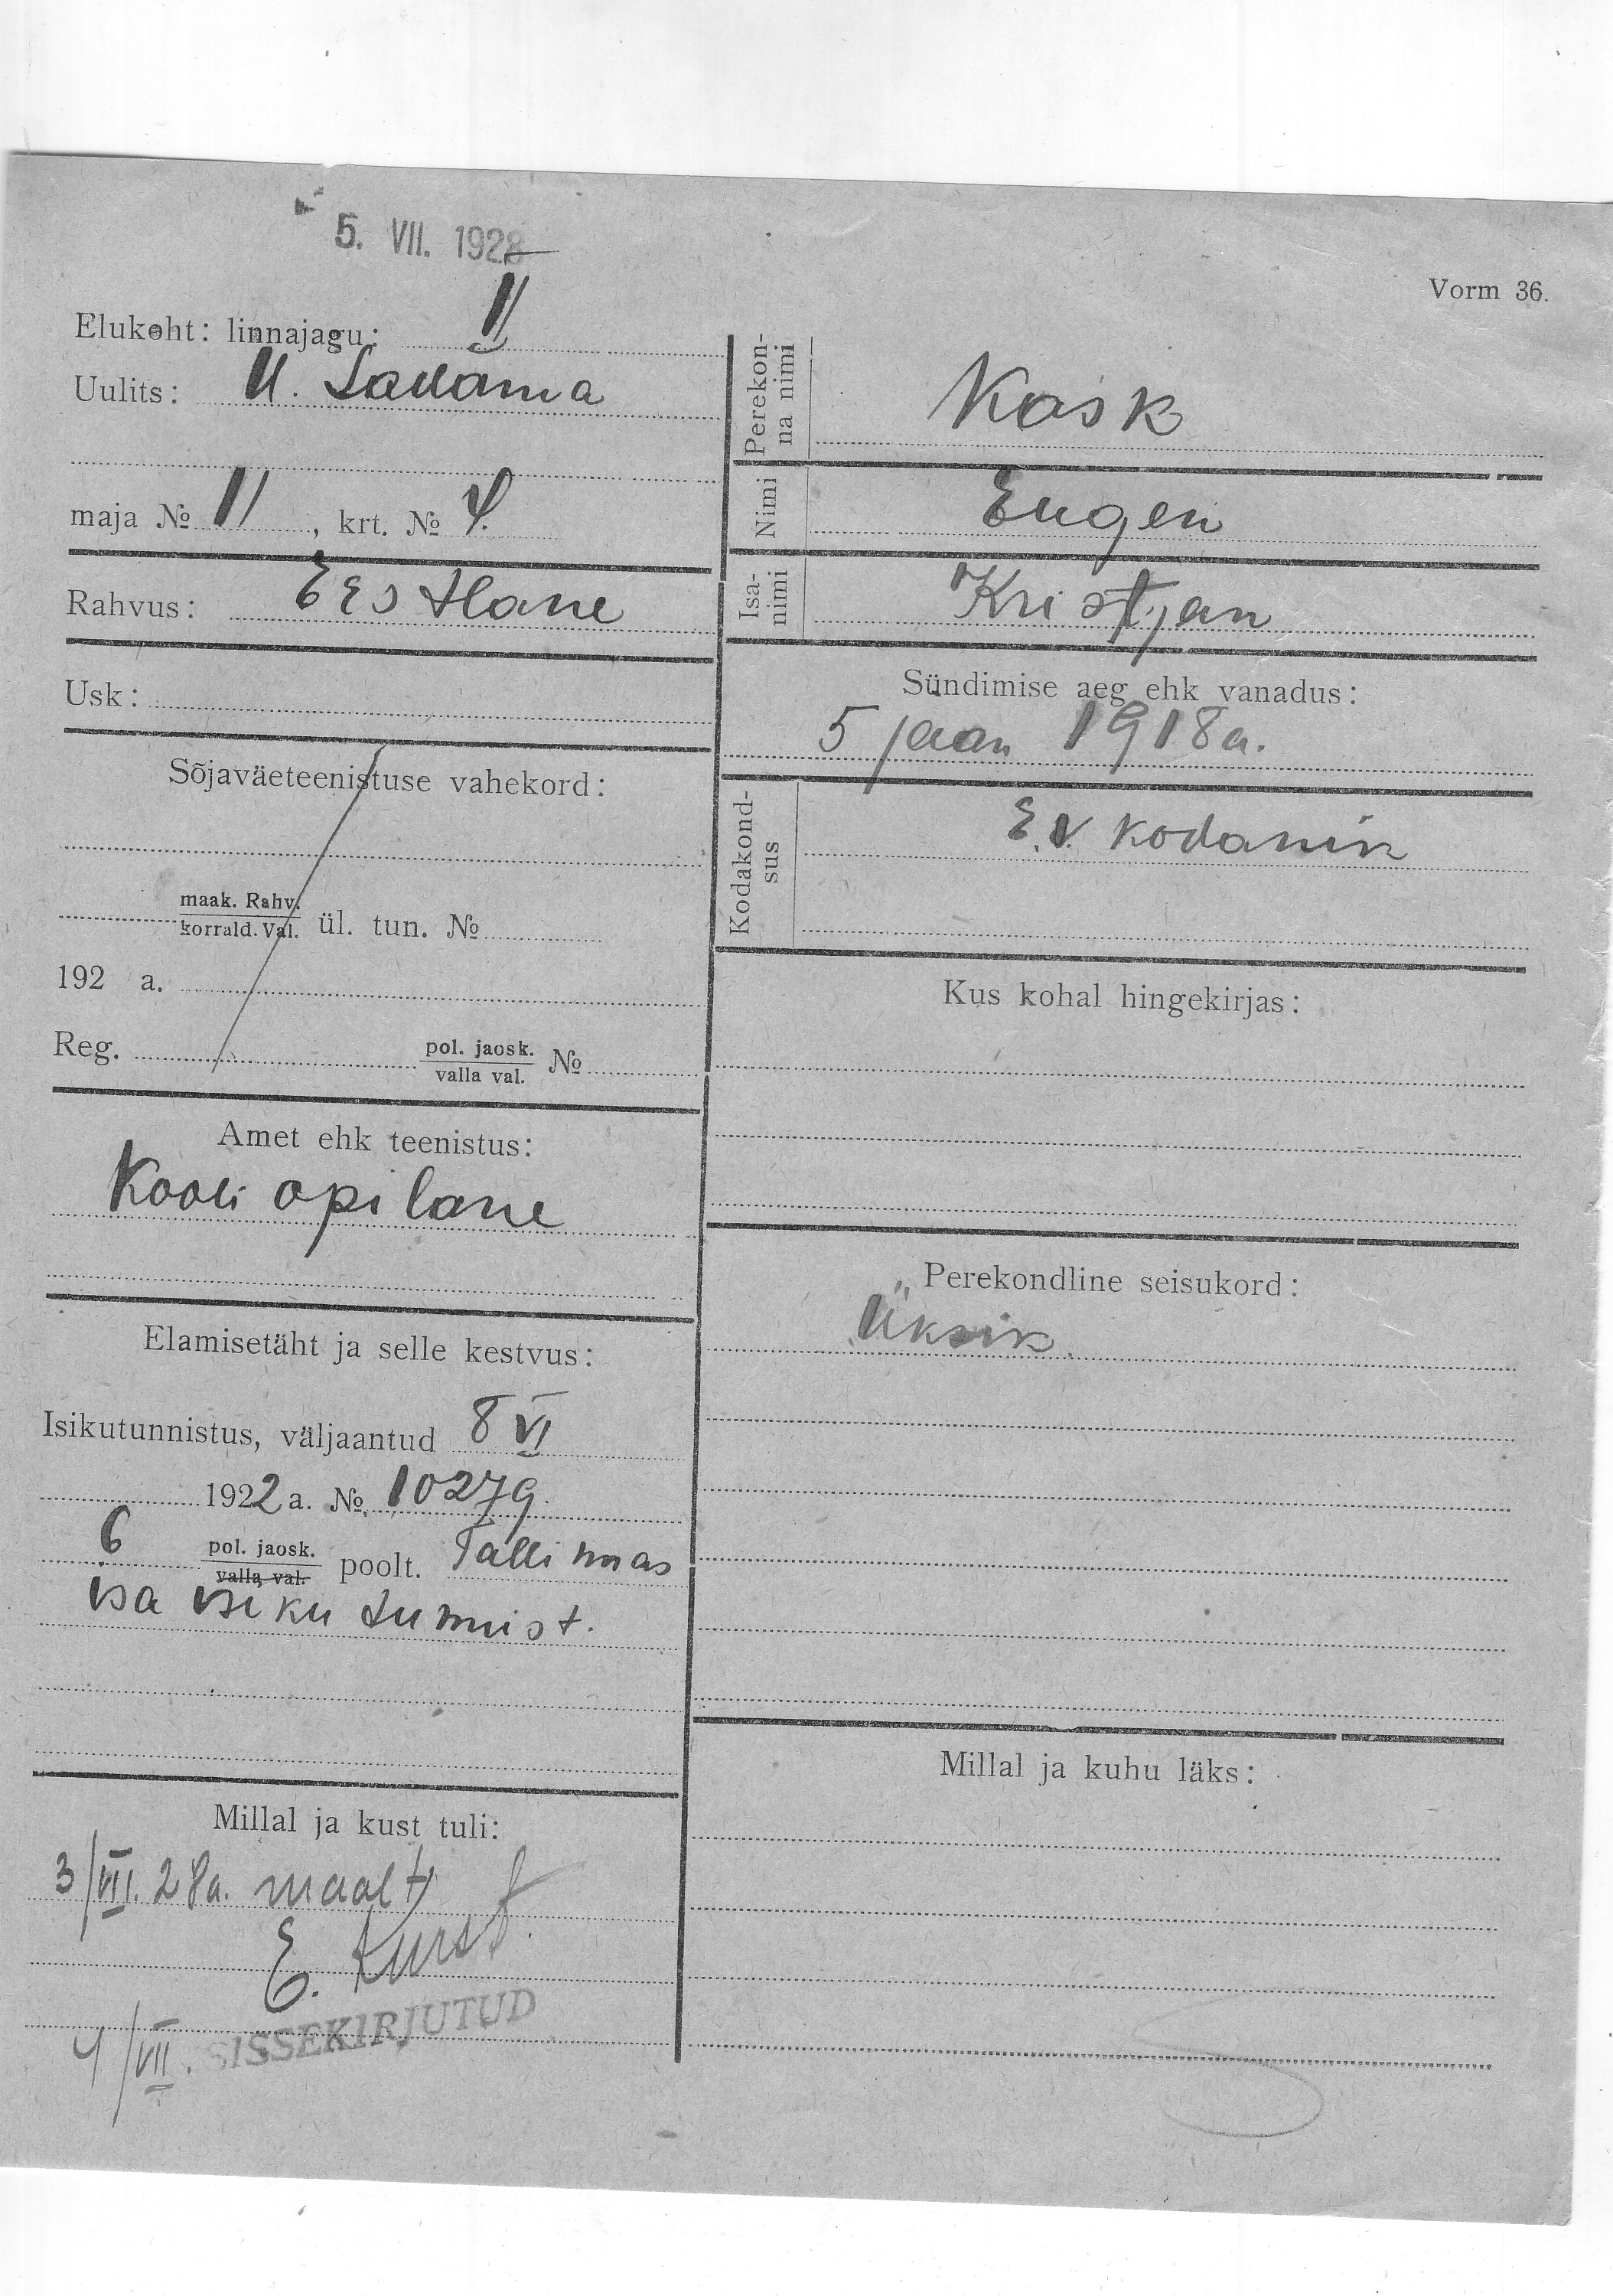 5. VII. 1928
Vorm 36.
Elukoht: linnajagu: II
Uulits: U. Sadama
maja № 11, krt. № 4.
Rahvus: Eestlane
Usk:
Sõjaväeteenistuse vahekord:
maak. Rahv.
korrald. Val. ül. tun. №
192 a.
Reg. pol. jaosk.
valla val. №
Amet ehk teenistus:
Kooli opilane
Elamisetäht ja selle kestvus:
Isikutunnistus, väljaantud 8 VI
1922 a. № 10279.
6 pol. jaosk.
valla val. poolt. Tallinnas
isa isiku tunnist.
Millal ja kust tuli:
3/VII. 28a. maalt
E. Kurst
4/VII. SISSEKIRJUTUD
Perekon-
na nimi Kask
Nimi Eugen
Isa-
nimi Kristjan
Sündimise aeg ehk vanadus:
5 jaan 1918 a.
Kodakond-
sus E.V. kodanik
Kus kohal hingekirjas:
Perekondline seisukord:
Üksik.
Millal ja kuhu läks: